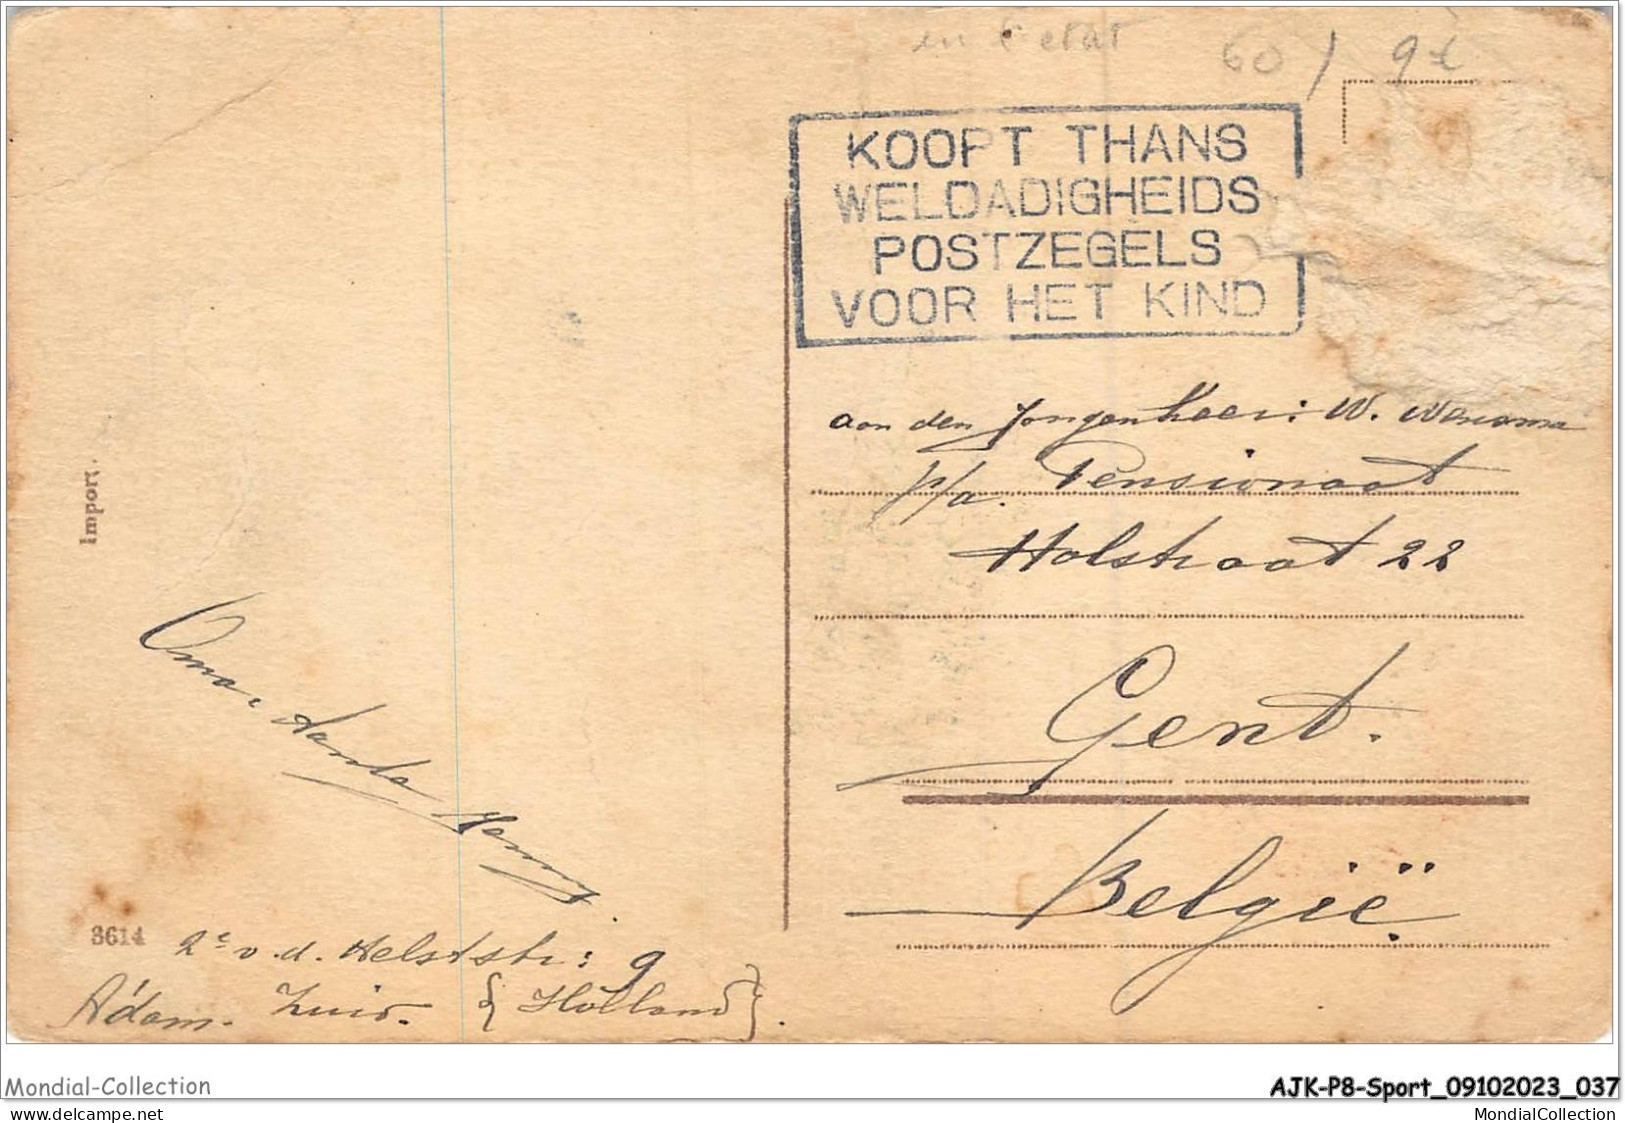 en l'etat 60/ 9€
KOOPT THANS
WELDADIGHEIDS
POSTZEGELS
VOOR HET KIND
aan den Jongenheer: W.
p/a. Pensionaat
Holstraat 22
Gent.
België.
Import.
Oma
3614 2e v.d. Helststr: 9
A'dam. Zuid. {Holland}.
Mondial-Collection
delcampe.net
AJK-P8-Sport_09102023_037
MondialCollection